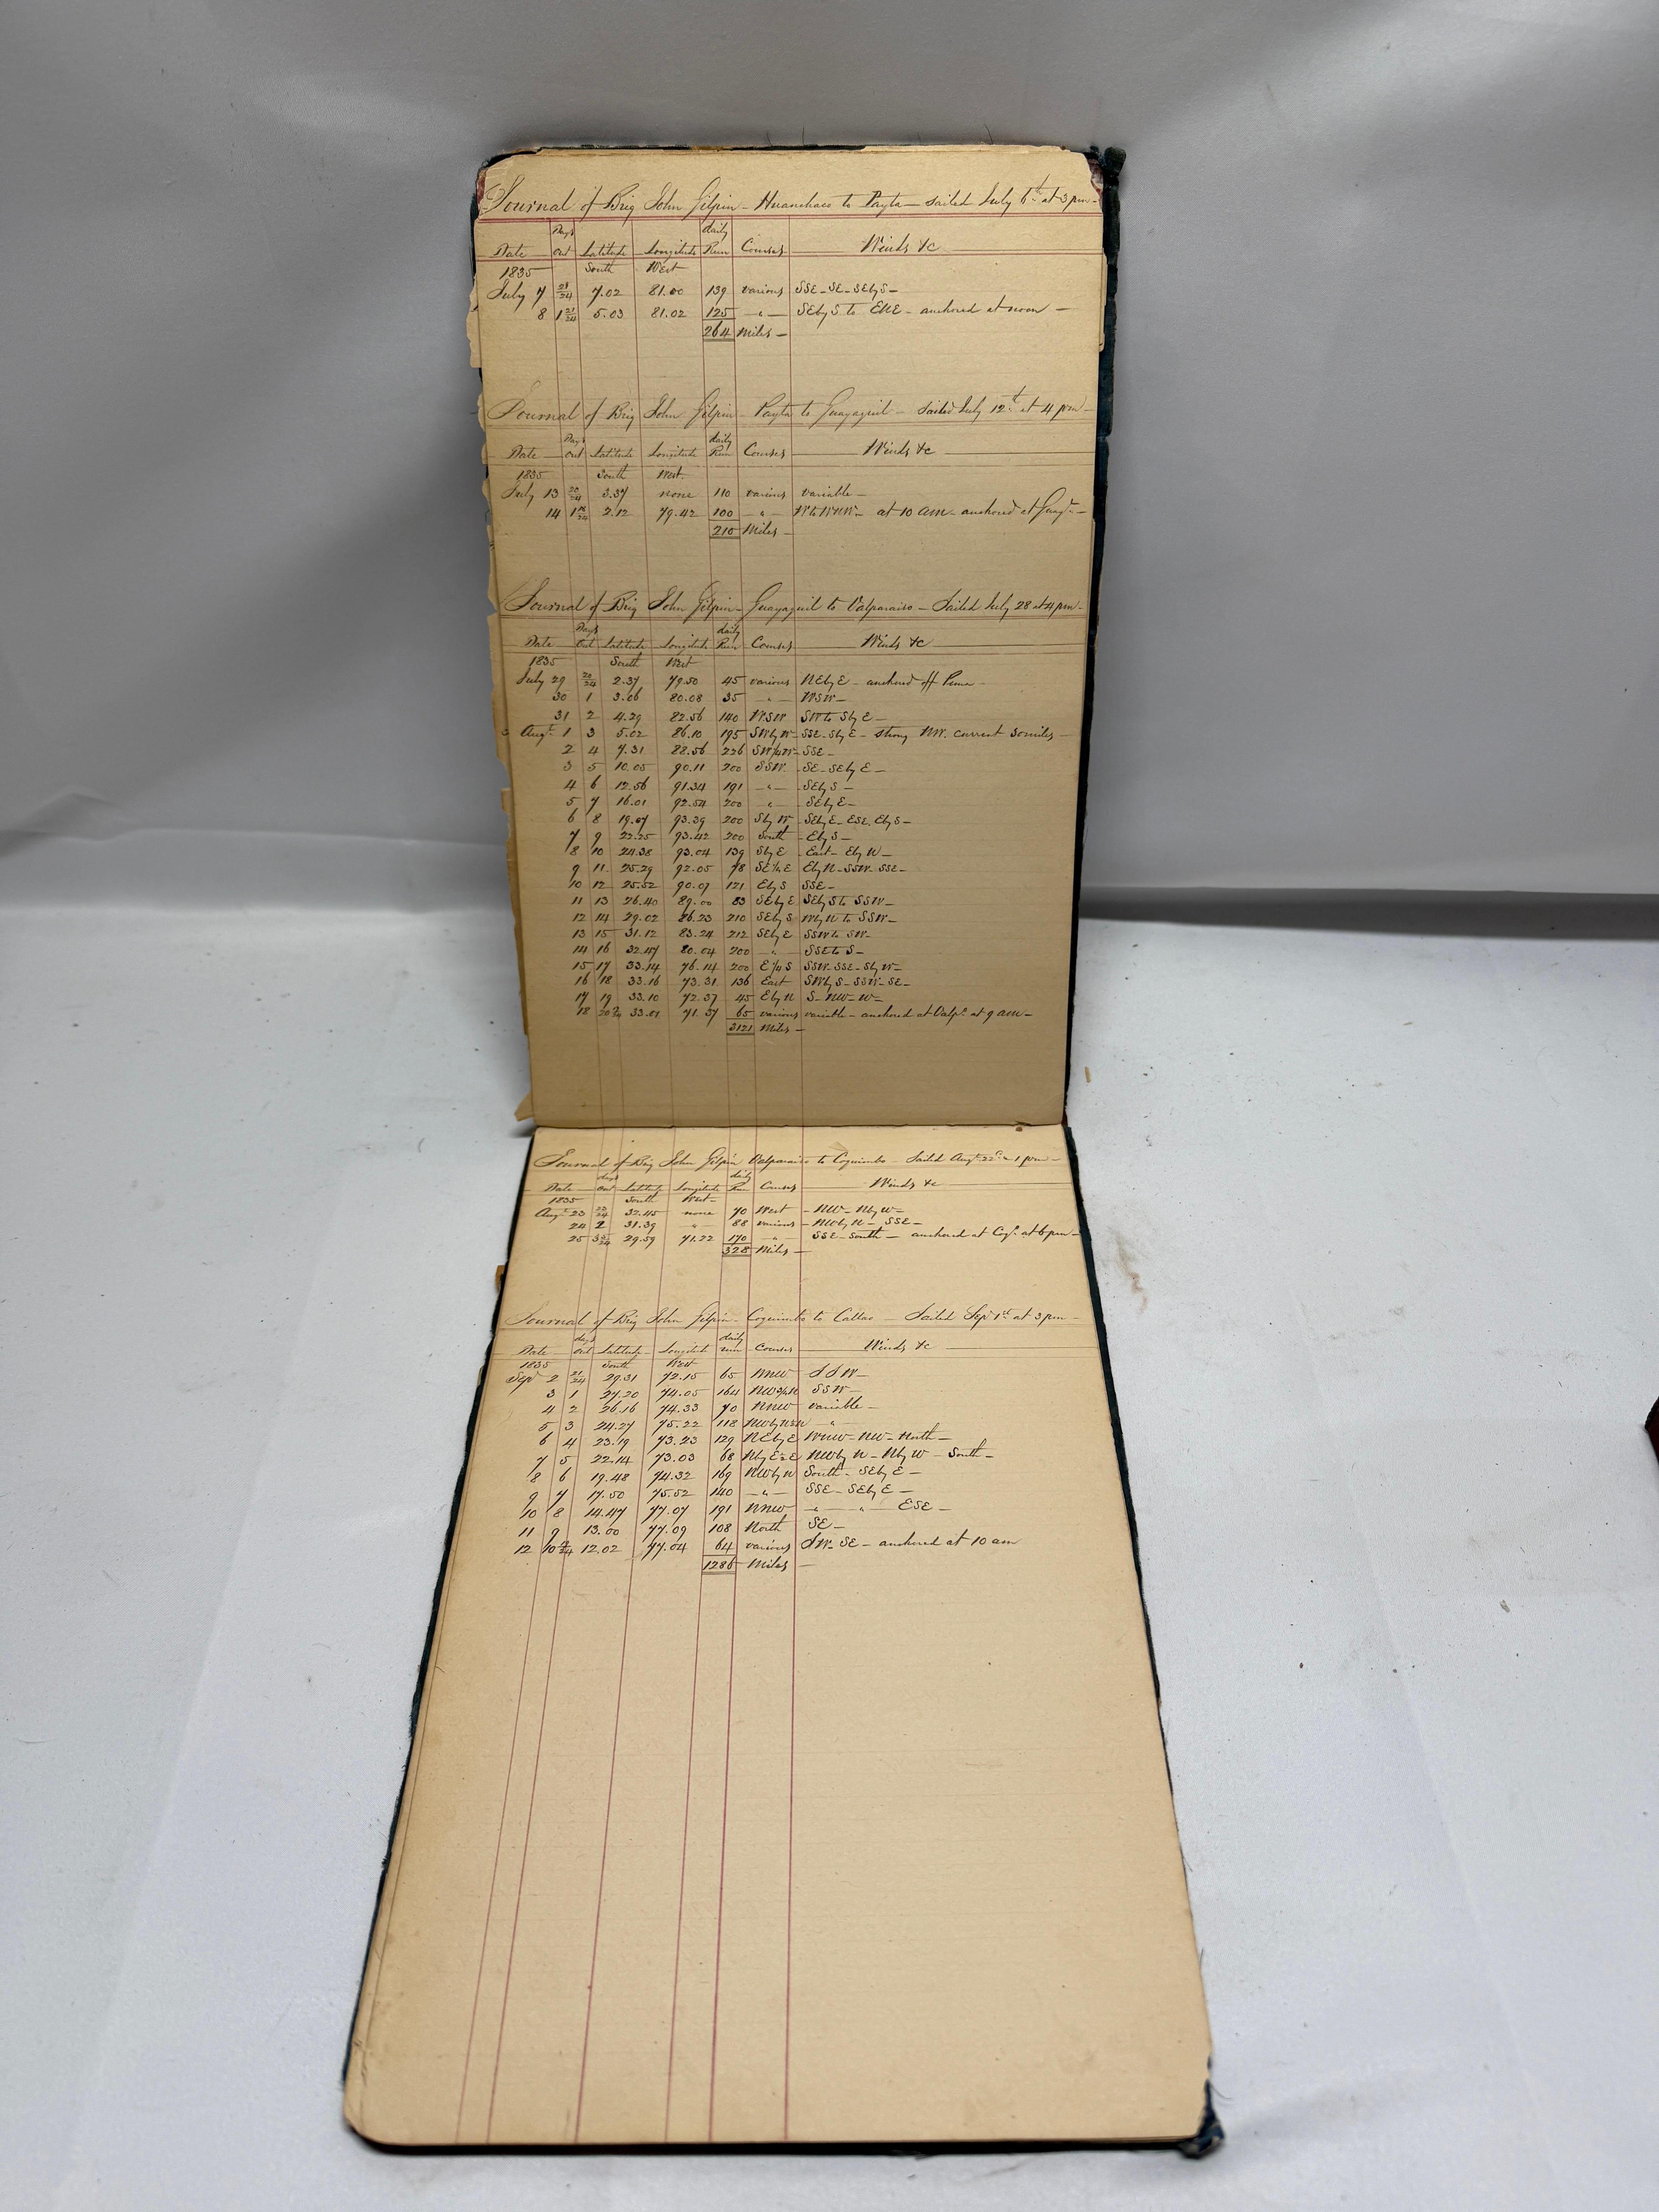 Journal of Brig John Gilpin - Huanchaco to Payta - Sailed July 6th at 3 pm -
Date Days out Latitude Longitude daily Run Courses Winds &c
1835 South West
July 7 21/24 7.02 81.00 139 various SSE - SE - SEbyS -
8 1 21/24 5.03 81.02 125 - " - SEbyS to ENE - anchored at noon -
264 Miles -
Journal of Brig John Gilpin - Payta to Guayaquil - Sailed July 12th at 4 pm -
Date Days out Latitude Longitude daily Run Courses Winds &c
1835 South West
July 13 20/24 3.37 none 110 various variable -
14 1 2.12 79.42 100 - " - W to WNW - at 10 am - anchored at Guayl -
210 Miles -
Journal of Brig John Gilpin - Guayaquil to Valparaiso - Sailed July 28 at 4 pm -
Date Days Out Latitude Longitude daily Run Courses Winds &c
1835 South West
July 29 20/24 2.37 79.50 45 various NEbyE - anchored off Puna -
30 1 3.06 80.08 35 " WSW -
31 2 4.29 82.56 140 WSW SW to SbyE -
Augt 1 3 5.02 86.10 195 SWbyW SSE - SbyE - strong NW. current 30 miles -
2 4 7.31 88.56 226 SW1/4W SSE -
3 5 10.05 90.11 200 SSW SE - SEbyE -
4 6 12.56 91.34 191 - " - SEbyS -
5 7 16.01 92.54 200 - " - SEbyE -
6 8 19.07 93.39 200 SbyW SEbyE - ESE. EbyS -
7 9 22.25 93.42 200 South EbyS -
8 10 24.38 93.04 139 SbyE East - EbyN -
9 11 25.29 92.05 78 SE1/2E EbyN - SSW - SSE -
10 12 25.52 90.07 121 EbyS SSE -
11 13 26.40 89.00 83 SEbyE SEbyS to SSW -
12 14 29.02 86.23 210 SEbyS WbyN to SSW -
13 15 31.12 83.24 212 SEbyE SSW to SW -
14 16 32.47 80.04 200 - " - SSE to S -
15 17 33.14 76.14 200 E1/4S SSW - SSE - SbyW -
16 18 33.16 73.31 136 East SWbyS - SSW - SE -
17 19 33.10 72.37 45 EbyN S - NW - W -
18 20 33.01 71.37 65 various variable - anchored at Valpo at 9 am -
3121 Miles -
Journal of Brig John Gilpin Valparaiso to Coquimbo - Sailed Augt 22d - 1 pm -
Date days out Latitude Longitude daily Run Courses Winds &c
1835 South West -
Augt 23 23/24 32.45 none 70 West - NW - NbyW -
24 2 31.39 - " - 88 various - NWbyN - SSE -
25 3 5/24 29.59 71.22 170 - " - SSE - South - anchored at Coqo at 6 pm -
328 Miles -
Journal of Brig John Gilpin - Coquimbo to Callao - Sailed Sept 1st at 3 pm -
Date days out Latitude Longitude daily run Courses Winds &c
1835 South West
Sept 2 21/24 29.31 72.15 65 WNW SSW -
3 1 27.20 74.05 164 NW3/4N SSW -
4 2 26.16 74.33 70 NNW variable -
5 3 24.27 75.22 118 NWbyN1/2N - " -
6 4 23.19 73.23 129 NEbyE WNW - NW - North -
7 5 22.14 73.03 68 NbyE1/2E NWbyN - NbyW - South -
8 6 19.48 74.32 169 NWbyN South - SEbyE -
9 7 17.50 75.52 140 - " - SSE - SEbyE -
10 8 14.47 77.07 191 NNW - " - " - ESE -
11 9 13.00 77.09 108 North SE -
12 10 12.02 77.04 64 various SW - SE - anchored at 10 am
1286 Miles -